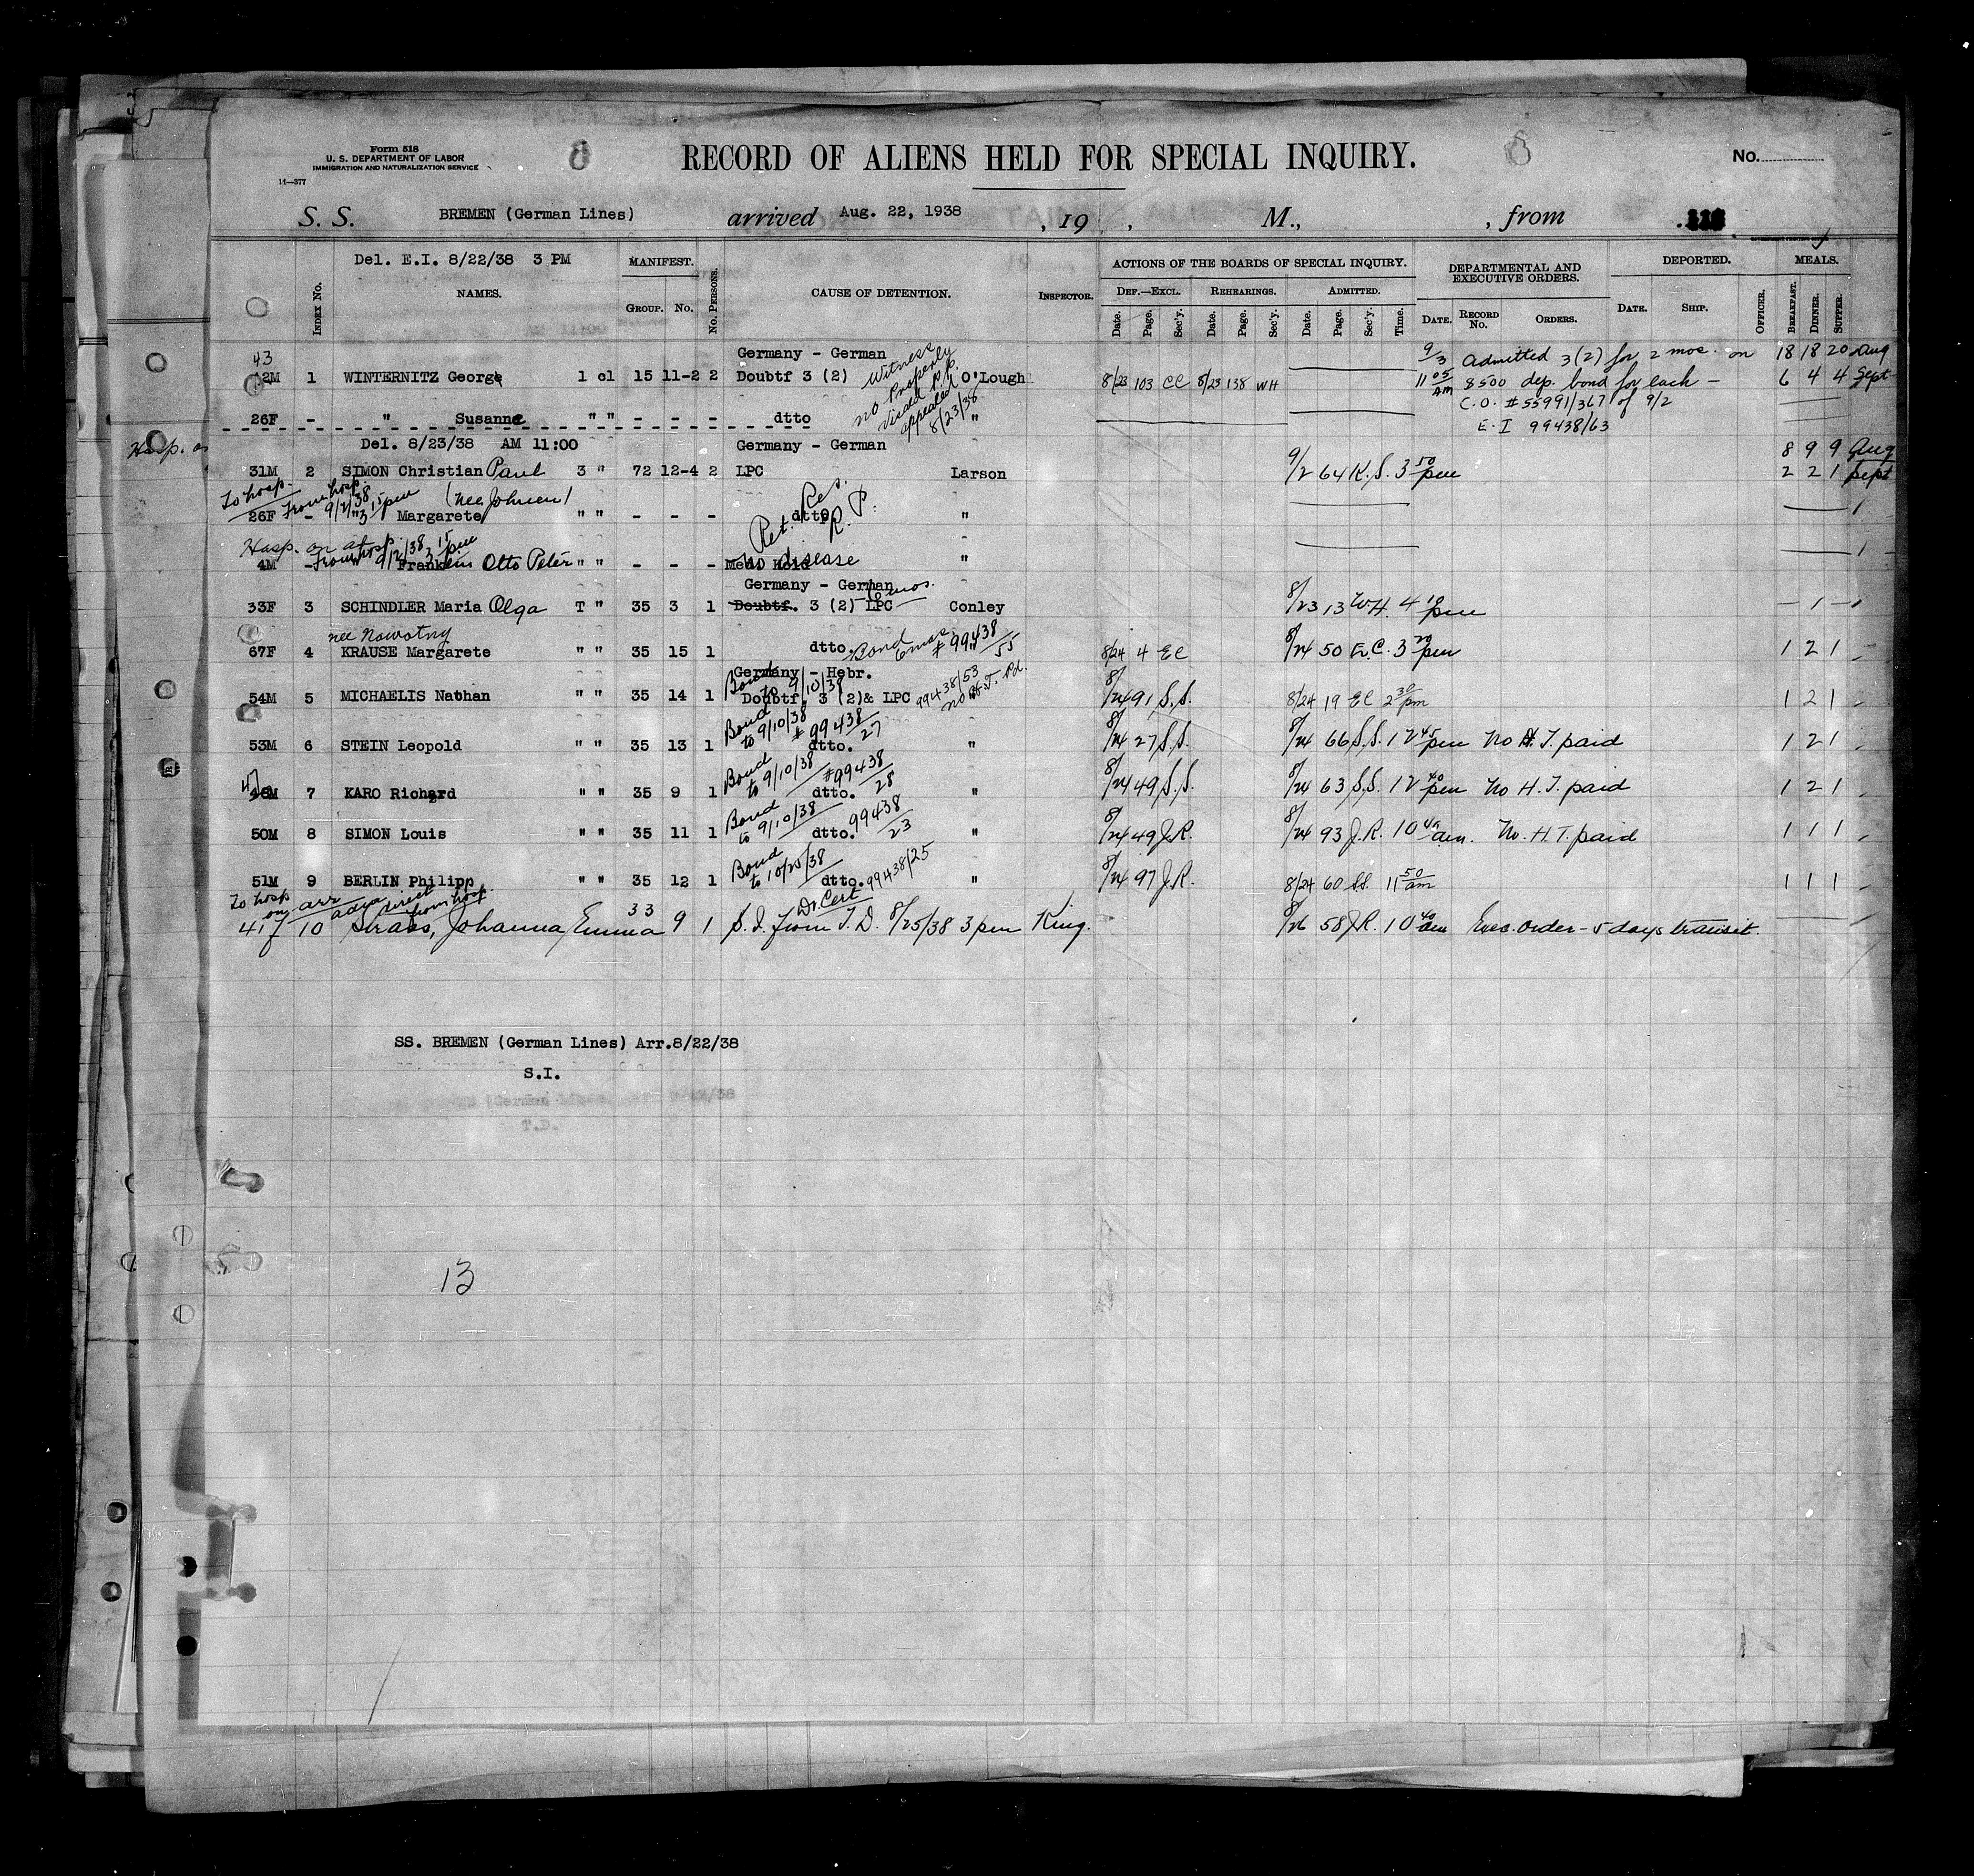 Form 518
U. S. DEPARTMENT OF LABOR
IMMIGRATION AND NATURALIZATION SERVICE
14—377
8
RECORD OF ALIENS HELD FOR SPECIAL INQUIRY.
8
No.
S. S. BREMEN (German Lines) arrived Aug. 22, 1938 , 19 , M., , from
Del. E.I. 8/22/38 3 PM
MANIFEST. ACTIONS OF THE BOARDS OF SPECIAL INQUIRY. DEPARTMENTAL AND EXECUTIVE ORDERS. DEPORTED. MEALS.
Index No. NAMES. GROUP. No. No. PERSONS. CAUSE OF DETENTION. INSPECTOR. DEF.—EXCL. REHEARINGS. ADMITTED.
Date. Page. Sec'y. Date. Page. Sec'y. Date. Page. Sec'y. Time. DATE. RECORD No. ORDERS. DATE. SHIP. OFFICER. BREAKFAST. DINNER. SUPPER.
43 Germany - German Witness 9/3 Admitted 3(2) for 2 mos. on 18 18 20 Aug
42M 1 WINTERNITZ George 1 cl 15 11-2 2 Doubtf 3 (2) no Properly O'Lough 8/23 103 CC 8/23 138 WH 11 05 AM 8500 dep. bond for each - 6 4 4 Sept
visaed P.P. C.O. #55991/367 of 9/2
26F - " Susanne " " - - - dtto appealed 8/23/38 " E.I 99438/63
Hosp. on
Del. 8/23/38 AM 11:00 Germany - German 8 9 9 Aug
31M 2 SIMON Christian Paul 3 " 72 12-4 2 LPC Larson 9/2 64 K.S. 3 50 pm 2 2 1 Sept
To hosp. From hosp. 9/2/38 3 15 pm (nee Johnen)
26F - " Margarete " " - - - dtto Ret. Res. R.P. " 1
Hosp. on From hosp 9/2/38 3 15 pm
4M - Otto Peter " " - - - Med Hold no disease " 1
Germany - German 6 mos.
33F 3 SCHINDLER Maria Olga T " 35 3 1 Doubtf. 3 (2) LPC Conley 8/23 13 W.H. 4 10 pm - 1 -
nee Nowotny
67F 4 KRAUSE Margarete " " 35 15 1 dtto. Bond 6 mos # 99438/55 8/24 4 EC 8/24 50 E.C. 3 20 pm 1 2 1
Germany - Hebr.
54M 5 MICHAELIS Nathan " " 35 14 1 Doubtf. 3 (2)& LPC Bond to 9/10/38 99438/53 no H.T. Pd. 8/24 91 S.S. 8/24 19 EC 2 30 pm 1 2 1
53M 6 STEIN Leopold " " 35 13 1 Bond to 9/10/38 # 99438/27 dtto. " 8/24 27 S.S. 8/24 66 S.S. 12 45 pm No H.T. paid 1 2 1
47
48M 7 KARO Richard " " 35 9 1 Bond to 9/10/38 #99438/28 dtto. " 8/24 49 S.S. 8/24 63 S.S. 12 40 pm No H.T. paid 1 2 1
50M 8 SIMON Louis " " 35 11 1 Bond to 9/10/38 dtto. 99438/23 " 8/24 49 J.R. 8/24 93 J.R. 10 40 am. No. H.T. paid 1 1 1
51M 9 BERLIN Philipp " " 35 12 1 Bond to 10/20/38 dtto. 99438/25 " 8/24 97 J.R. 8/24 60 SS. 11 50 am 1 1 1
To hosp on arr direct from hosp Dr. Cert
41f 10 Strass, Johanna Emma 33 9 1 S.I. from T.D. 8/25/38 3 pm King. 8/26 58 J.R. 10 40 am Exec. order - 5 days transit.
SS. BREMEN (German Lines) Arr.8/22/38
S.I.
13